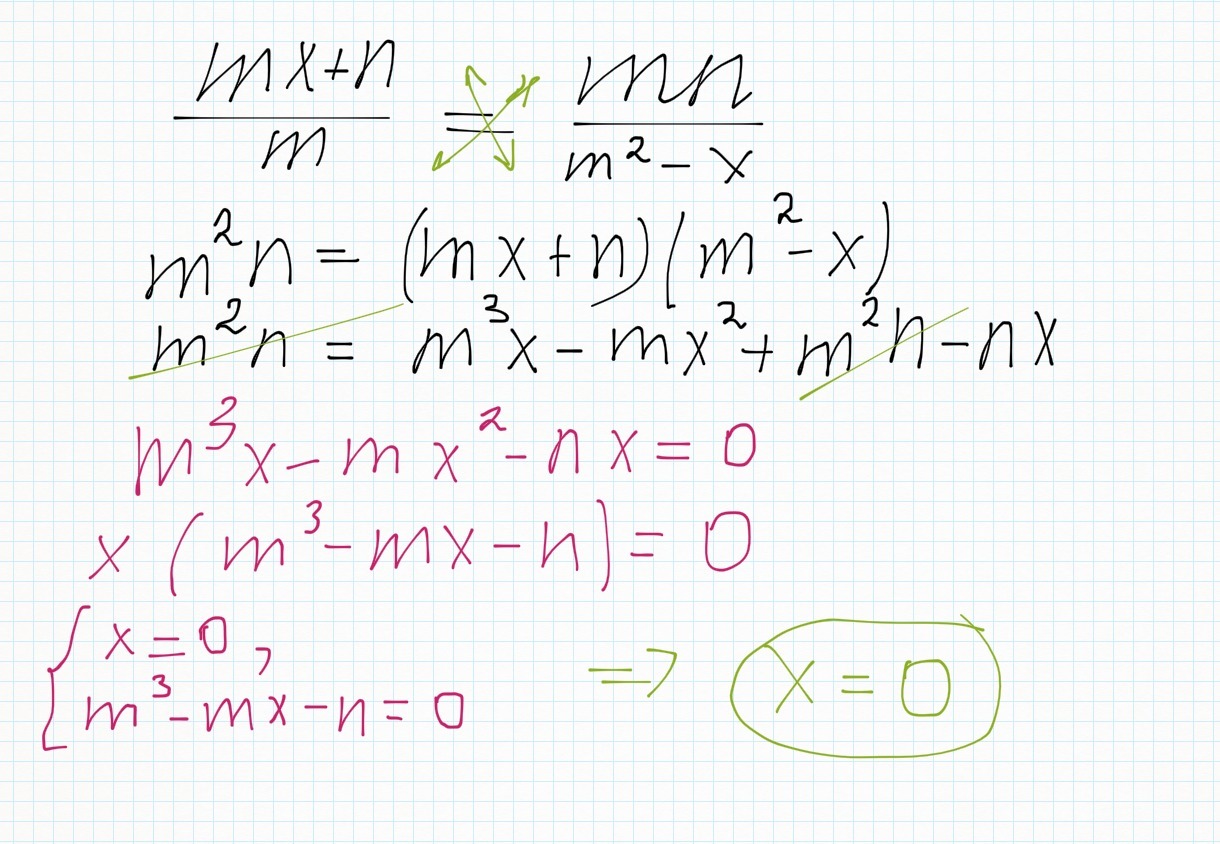 (mx+n)/m = mn/(m² - x)
m²n = (mx + n)(m² - x)
m²n = m³x - mx² + m²n - nx
m³x - mx² - nx = 0
x (m³ - mx - n) = 0
{ x = 0,
m³ - mx - n = 0 => x = 0